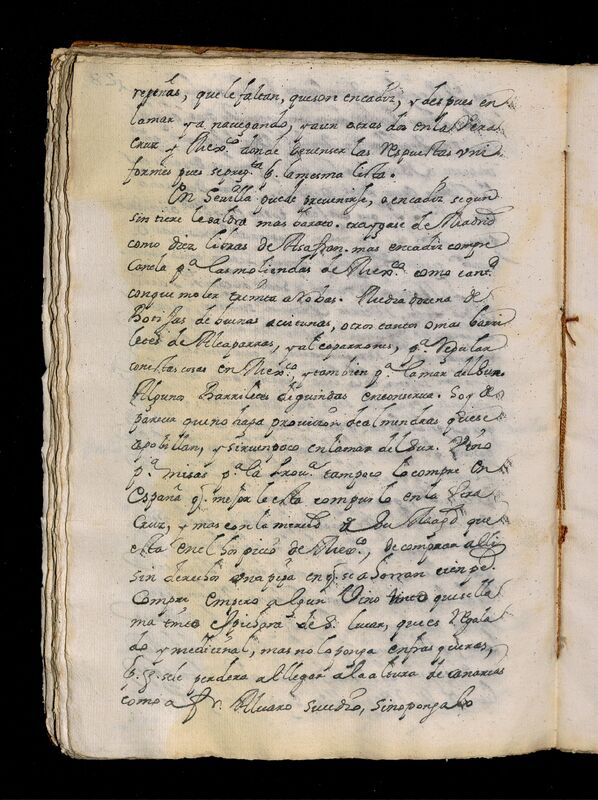 que le faltan, que son en cadiz, y despues en
la mar ya navegando, y aun otras dos en la Vera
Cruz y Mexco. donde las Respuestas vni
formes pues la mesma lista.
En Sevilla puede preuenirse, o en cadiz segun
sin tiene le saldra mas barato. traygase de Madrid
como diez libras de Asafran. mas en cadiz compre
Canela pa. las moliendas de Mexco. como cant.
con que moler treinta arrobas. Media dozena de
Botijas de buenas aceitunas, otros tantos o mas barri
letes de Alcaparras, y alcaparrones, pa. Regalar
con estas cosas en Mexco. y tambien pa. la mar del Sur.
Alguno Barriletes de guindas en conserua. Soy de
parecer que no haga prouision de almendras que se
apolillan, y siruen poco en la mar del Sur. Vino
pa. misas pa. la Proua. tampoco lo compre en
España q. mejor le esta comprarlo en la Vera
Cruz, y mas con la merced d su Magd que
esta en el hospicio de Mexco., de comprar alli
sin derechos una pipa en q. se ahorran cien ps.
Compre empero algun Vino tinto que se lla
ma tinto de S. Lucar, que es Regala
do y medicinal, mas no lo ponga en frasqueras,
q. se le perdera al llegar a la altura de canarias
como a fr. Aluaro sucedio, sino pongalo